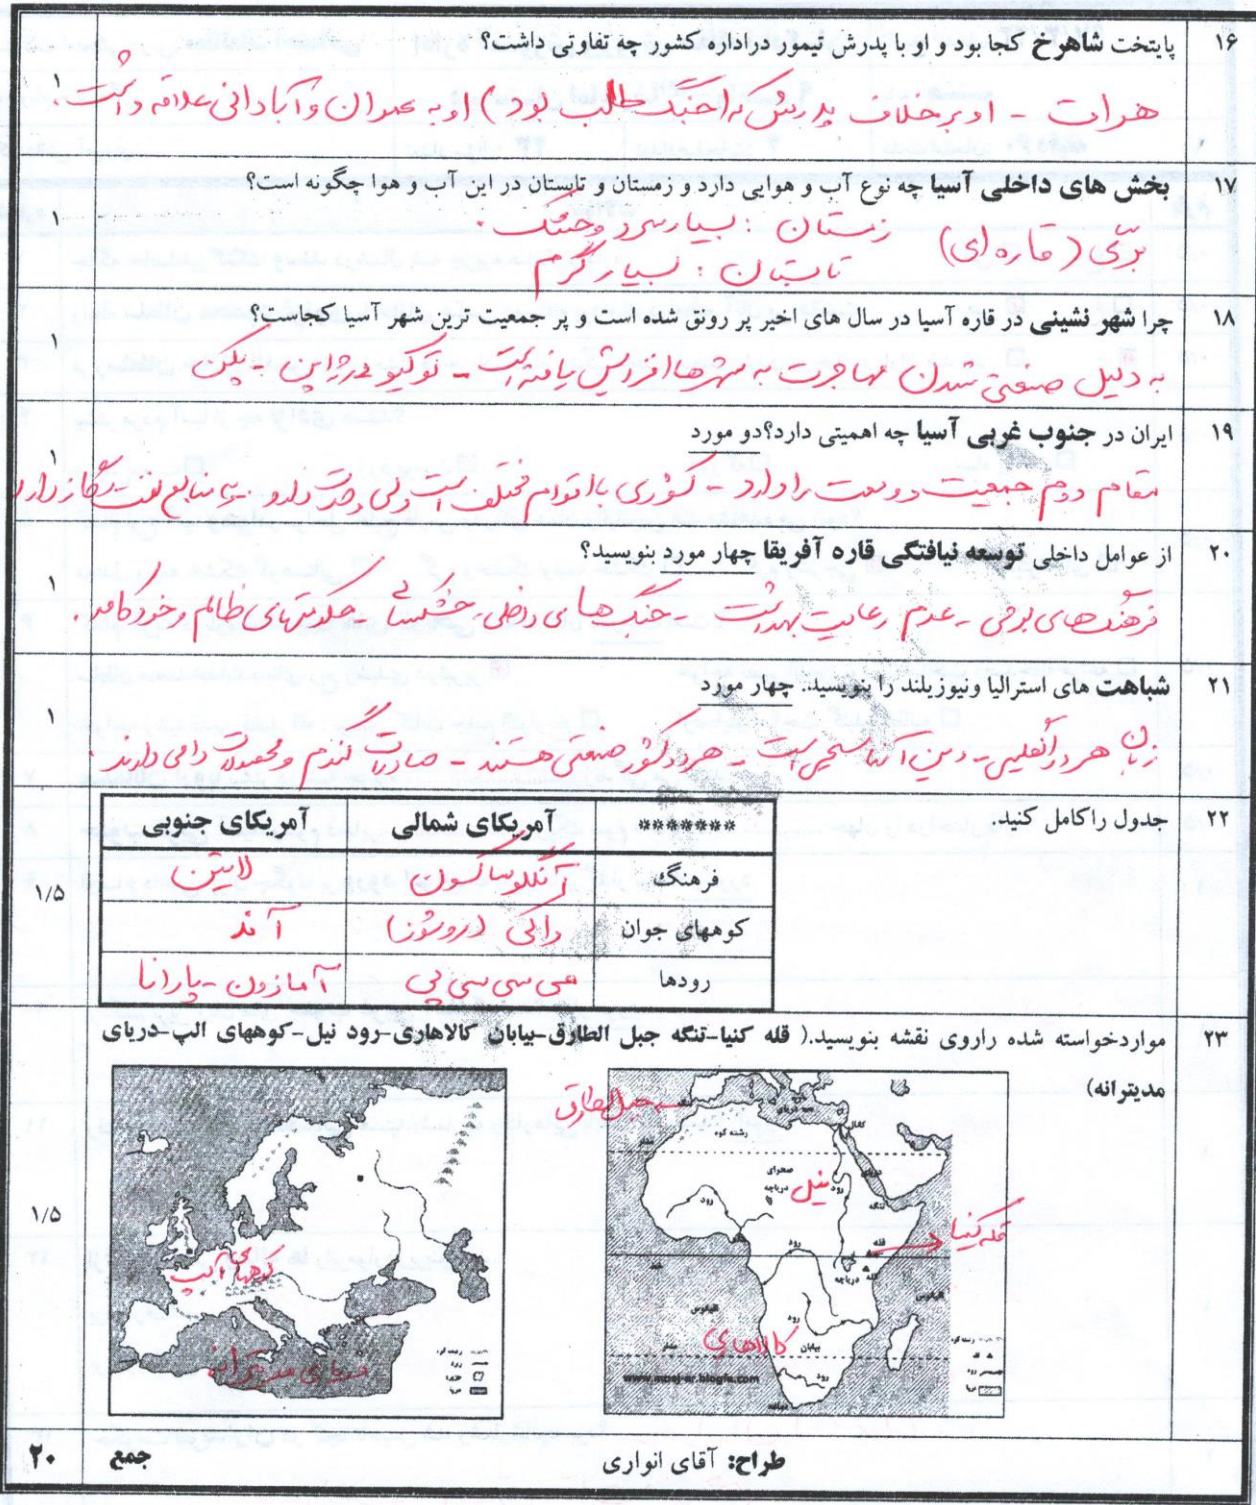 ۱۶ پایتخت شاهرخ کجا بود و او با پدرش تیمور دراداره کشور چه تفاوتی داشت؟
هرات - او برخلاف پدرش که (جنگ طلب بود) او به عمران و آبادانی علاقه داشت ۱
۱۷ بخش های داخلی آسیا چه نوع آب و هوایی دارد و زمستان و تابستان در این آب و هوا چگونه است؟
برّی (قاره ای) زمستان : بسیار سرد و خشک . ۱
تابستان : بسیار گرم
۱۸ چرا شهر نشینی در قاره آسیا در سال های اخیر پر رونق شده است و پر جمعیت ترین شهر آسیا کجاست؟
به دلیل صنعتی شدن مهاجرت به شهرها افزایش یافته است - توکیو در ژاپن ۱
۱۹ ایران در جنوب غربی آسیا چه اهمیتی دارد؟دو مورد
مقام دوم جمعیت و وسعت را دارد - کشوری با اقوام مختلف است ولی وحدت دارد - منابع نفت و گاز دارد ۱
۲۰ از عوامل داخلی توسعه نیافتگی قاره آفریقا چهار مورد بنویسید؟
فرهنگ های بومی - عدم رعایت بهداشت - جنگ های داخلی - خشکسالی - حکومتهای ظالم و خودکامه . ۱
۲۱ شباهت های استرالیا ونیوزیلند را بنویسید. چهار مورد
زبان هر دو انگلیسی - دین آنها مسیحی است - هر دو کشور صنعتی هستند - صادرات گندم و محصولات دامی دارند . ۱
۲۲ جدول راکامل کنید. ۱/۵
******* آمریکای شمالی آمریکای جنوبی
فرهنگ آنگلوساکسون لاتین
کوههای جوان راکی (روشوز) آند
رودها می سی سی پی آمازون - پارانا
۲۳ مواردخواسته شده راروی نقشه بنویسید.( قله کنیا-تنگه جبل الطارق-بیابان کالاهاری-رود نیل-کوههای الپ-دریای
مدیترانه) ۱/۵
جبل الطارق
رشته کوه
کانال
صحرای
دریاچه
نیل
رود
تنگه
رود
قله
قله کنیا
رود
دریاچه
قله
اقیانوس
اقیانوس
رود
کالاهاری
بیابان
رود
www.moaj-ar.blogfa.com
کوههای آلپ
دریای مدیترانه
طراح: آقای انواری جمع ۲۰